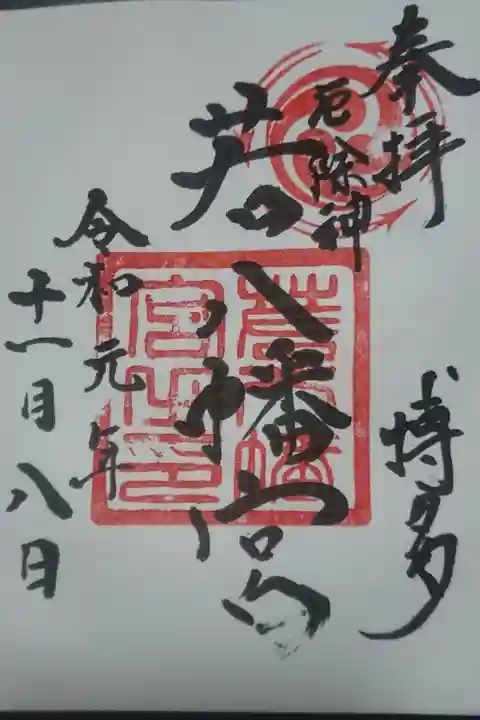 奉拝
博多
厄除神
若八幡宮
若八幡宮之印
令和元年
十一月八日